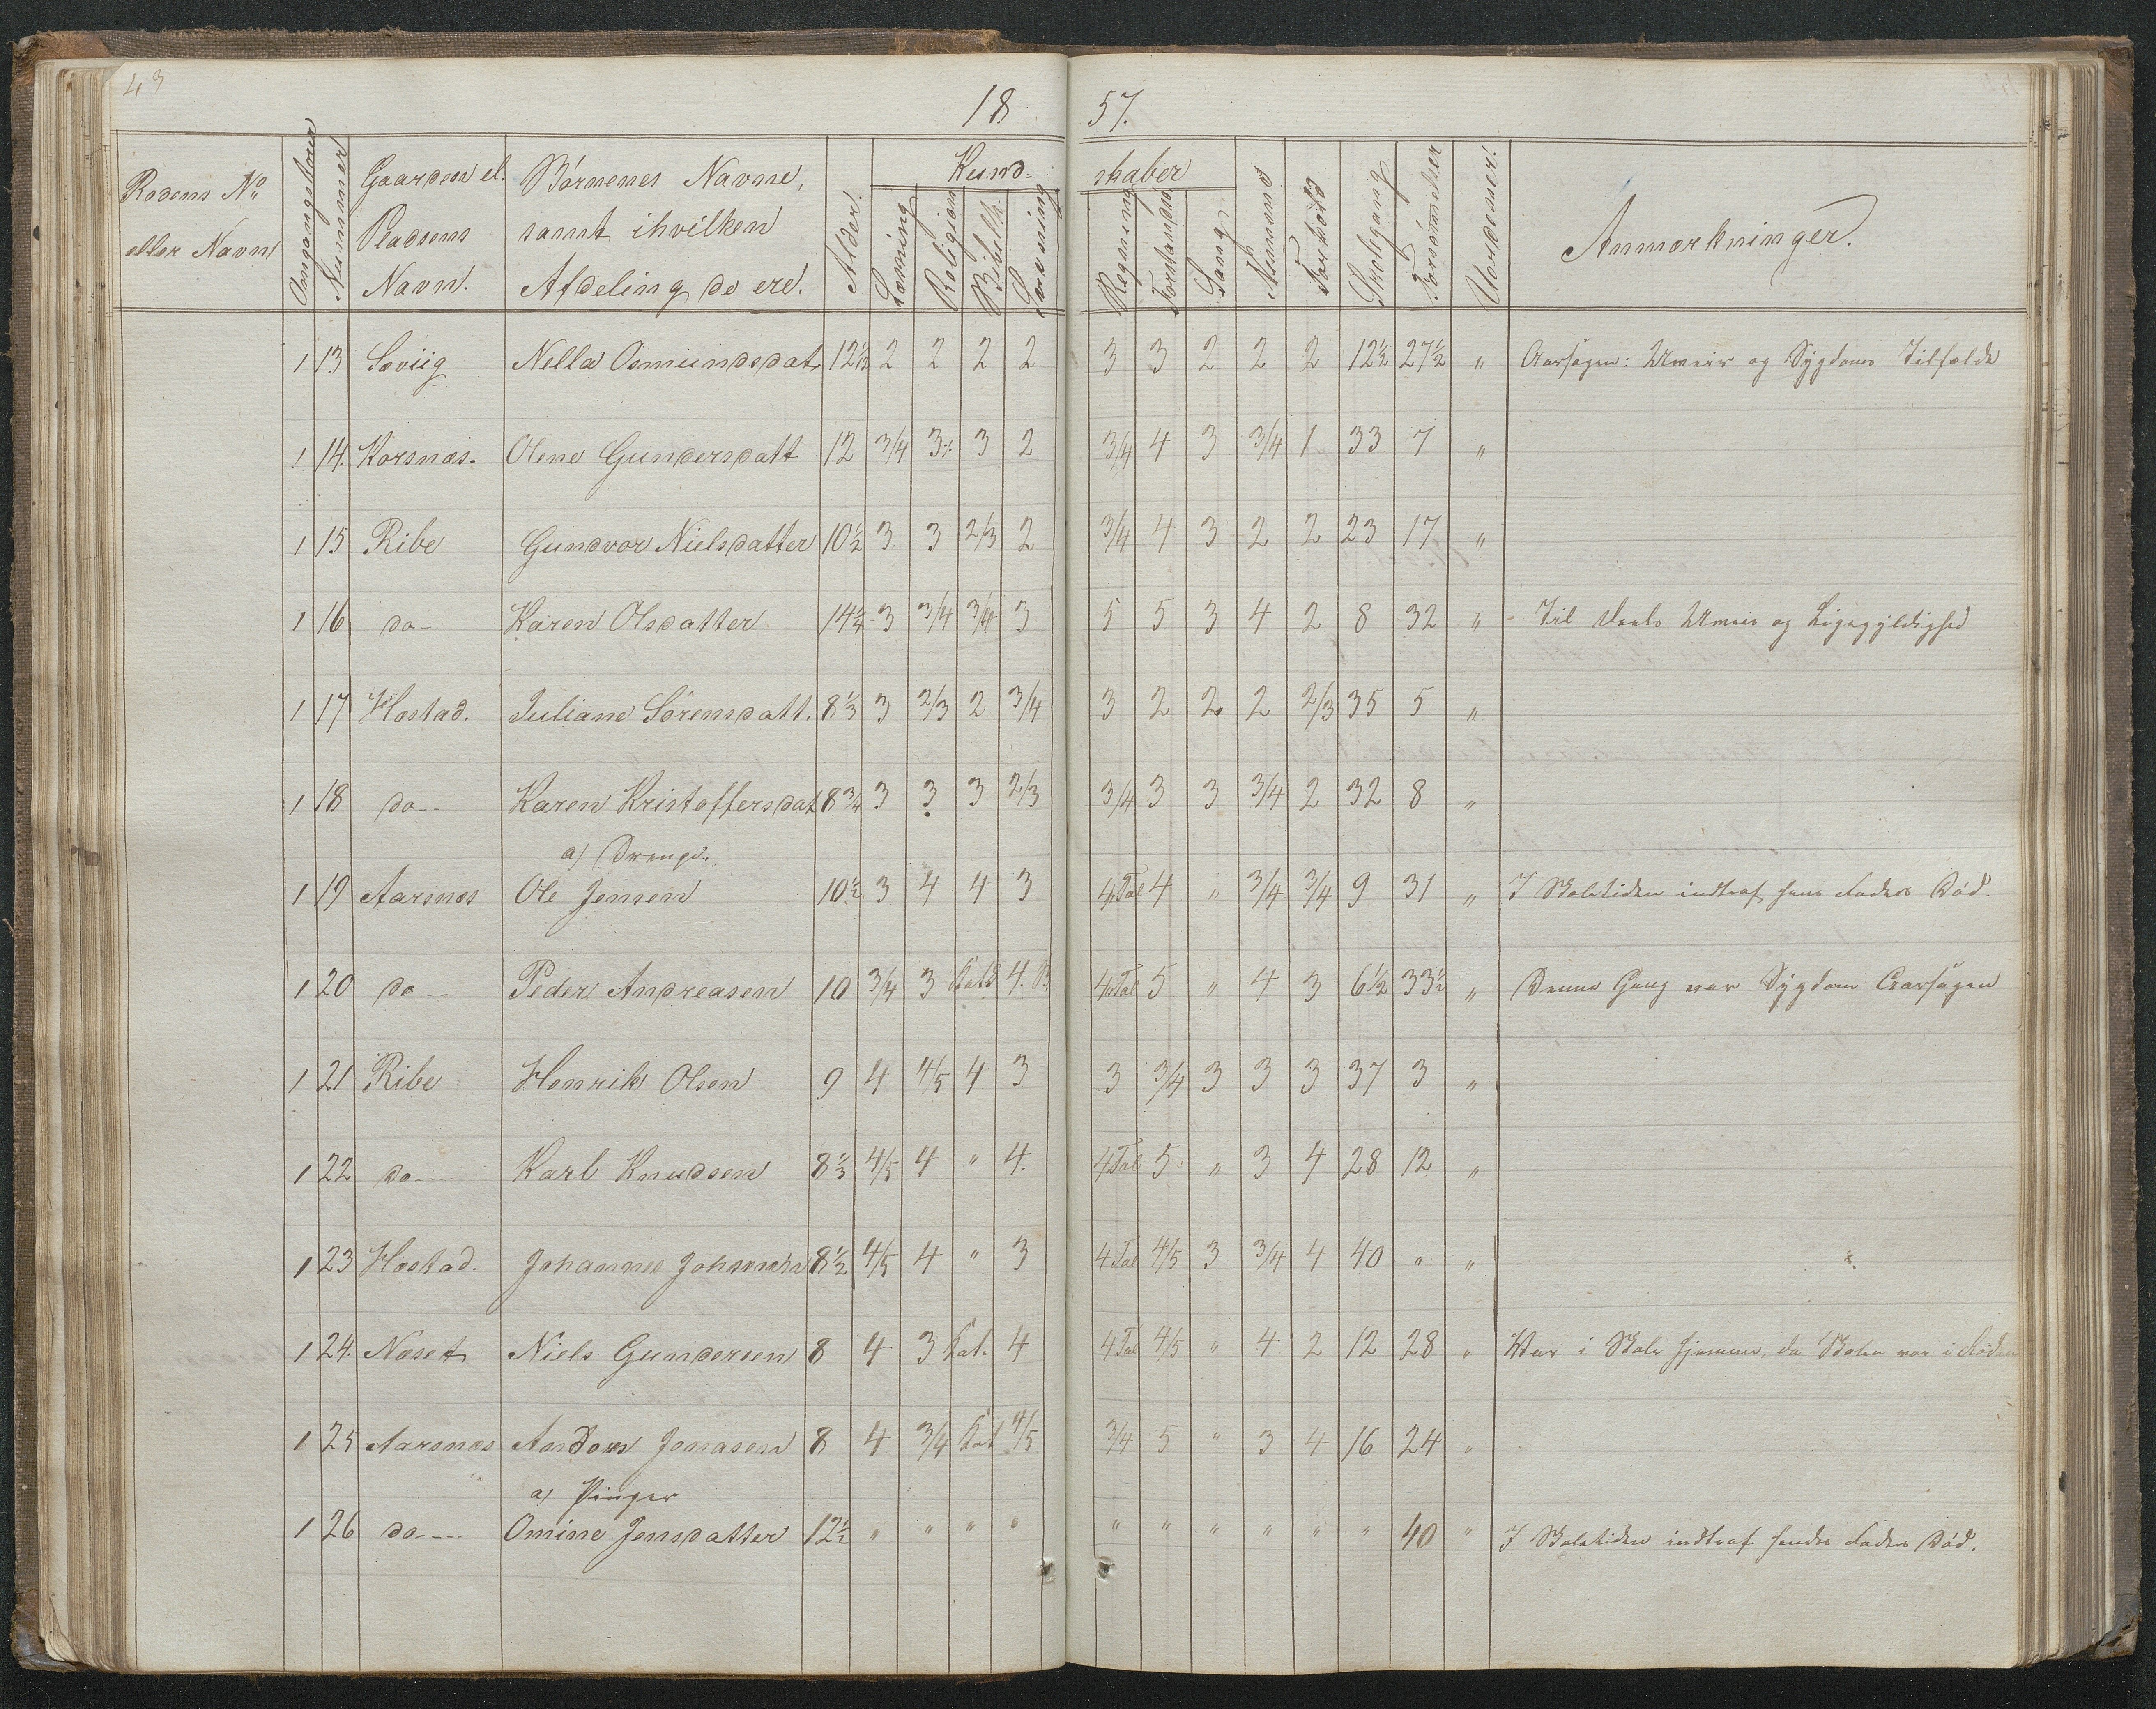 43
18 57.
Rodens No eller Navn
Omgangstour
Nummer
Gaarden el. Pladsens Navn.
Börnenes Navne, samt i hvilken Afdeling de ere.
Alder.
Kund- skaber
Læsning
Religion
Bibelh.
Skrivning
Regning
Forstandso
Sang
Nemme
Forhold
Skolegang
Forsömmelser
Anmærkninger.
1 13 Søviig Nella Osmundsdat. 12 1/2 2 2 2 2 3 3 2 2 2 12 1/2 27 1/2 " Aarsagen: Uveir og Sygdoms Tilfælde
1 14. Korsnæs. Olene Gundersdatt 12 3/4 3 3 2 3/4 4 3 3/4 1 33 7 "
1 15 Ribe Gundvor Nielsdatter 10 1/2 3 3 2/3 2 3/4 4 3 2 2 23 17 "
1 16 do- Karen Olsdatter 14 1/4 3 3/4 3/4 3 5 5 3 4 2 8 32 " Til Deels Uveir og Ligegyldighed
1 17 Hæstad. Juliane Sörensdatt. 8 1/3 3 2/3 2 3/4 3 2 2 2 2/3 35 5 "
1 18 do-- Karen Kristoffersdat 8 3/4 3 3 3 2/3 3/4 3 3 3/4 2 32 8 "
a) Drenge.
1 19 Aarsnæs Ole Jensen 10 1/2 3 4 4 3 4Tal 4 " 3/4 3/4 9 31 " I Skoletiden indtraf hans Faders Död.
1 20 do-- Peder Andreasen 10 3/4 3 Kat 4. 4Tal 5 " 4 3 6 1/2 33 1/2 " Denne Gang var Sygdom Aarsagen
1 21 Ribe Henrik Olsen 9 4 4/5 4 3 3 3/4 3 3 3 37 3 "
1 22 do--- Karl Knudsen 8 1/3 4/5 4 " 4. 4Tal 5 " 3 4 28 12 "
1 23 Hæstad. Johannes Johnsen 8 1/2 4/5 4 " 3 4Tal 4/5 3 3/4 4 40 " "
1 24. Næset Niels Gundersen 8 4 3 Kat. 4 4Tal 4/5 " 4 2 12 28 " Var i Skole hjemme, da Skolen var i Roden
1 25 Aarsnæs Anders Jonasen 8 4 3/4 Kat 4/5 3/4 5 " 3 4 16 24 "
a) Piger
1 26 do--- Omine Jensdatter 12 1/2 " " " " " " " " " " 40 " I Skoletiden indtraf hendes Faders Död.